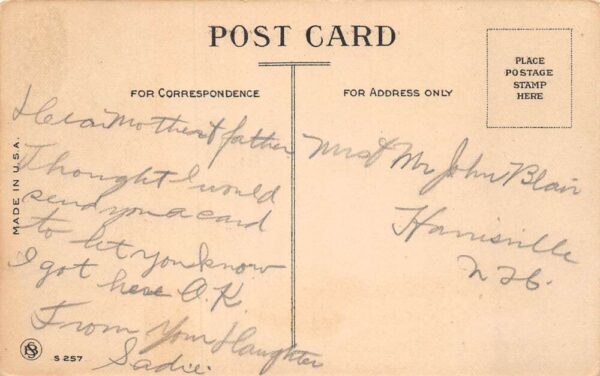 POST CARD
FOR CORRESPONDENCE
FOR ADDRESS ONLY
PLACE
POSTAGE
STAMP
HERE
MADE IN U.S.A.
Dear Mother & father
Thought I would
send you a card
to let you know
I got here O.K.
From Your Daughter
Sadie.
Mrs & Mr John Blair
Harrisville
N H.
S 257